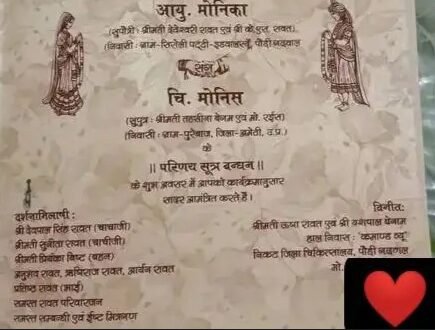 आयु. मोनिका
(सुपौत्री: श्रीमती देवेश्वरी रावत एवं श्री के.एस. रावत)
(निवासी: ग्राम-सिरोली पट्टी-इडवालस्यूं, पौड़ी गढ़वाल)
संग
चि. मोनिस
(सुपुत्र: श्रीमती तहसीना बेगम एवं मो. रईस)
(निवासी: ग्राम-पुरेबाज, जिला-अमेठी, उ.प्र.)
के
|| परिणय सूत्र बन्धन ||
के शुभ अवसर में आपको कार्यक्रमानुसार
सादर आमंत्रित करते हैं।
दर्शनाभिलाषी:
श्री देवपाल सिंह रावत (चाचाजी)
श्रीमती सुनीता रावत (चाचीजी)
श्रीमती प्रियंका बिष्ट (बहन)
अनुभव रावत, ऋषिराज रावत, आर्यन रावत
प्रतिष्ठ रावत (भाई)
समस्त रावत परिवारजन
समस्त सम्बन्धी एवं ईष्ट मित्रगण
विनीत:
श्रीमती ऊषा रावत एवं श्री यशपाल बेनाम
हाल निवास: कमाण्ड व्यू
निकट जिला चिकित्सालय, पौड़ी गढ़वाल
मो.